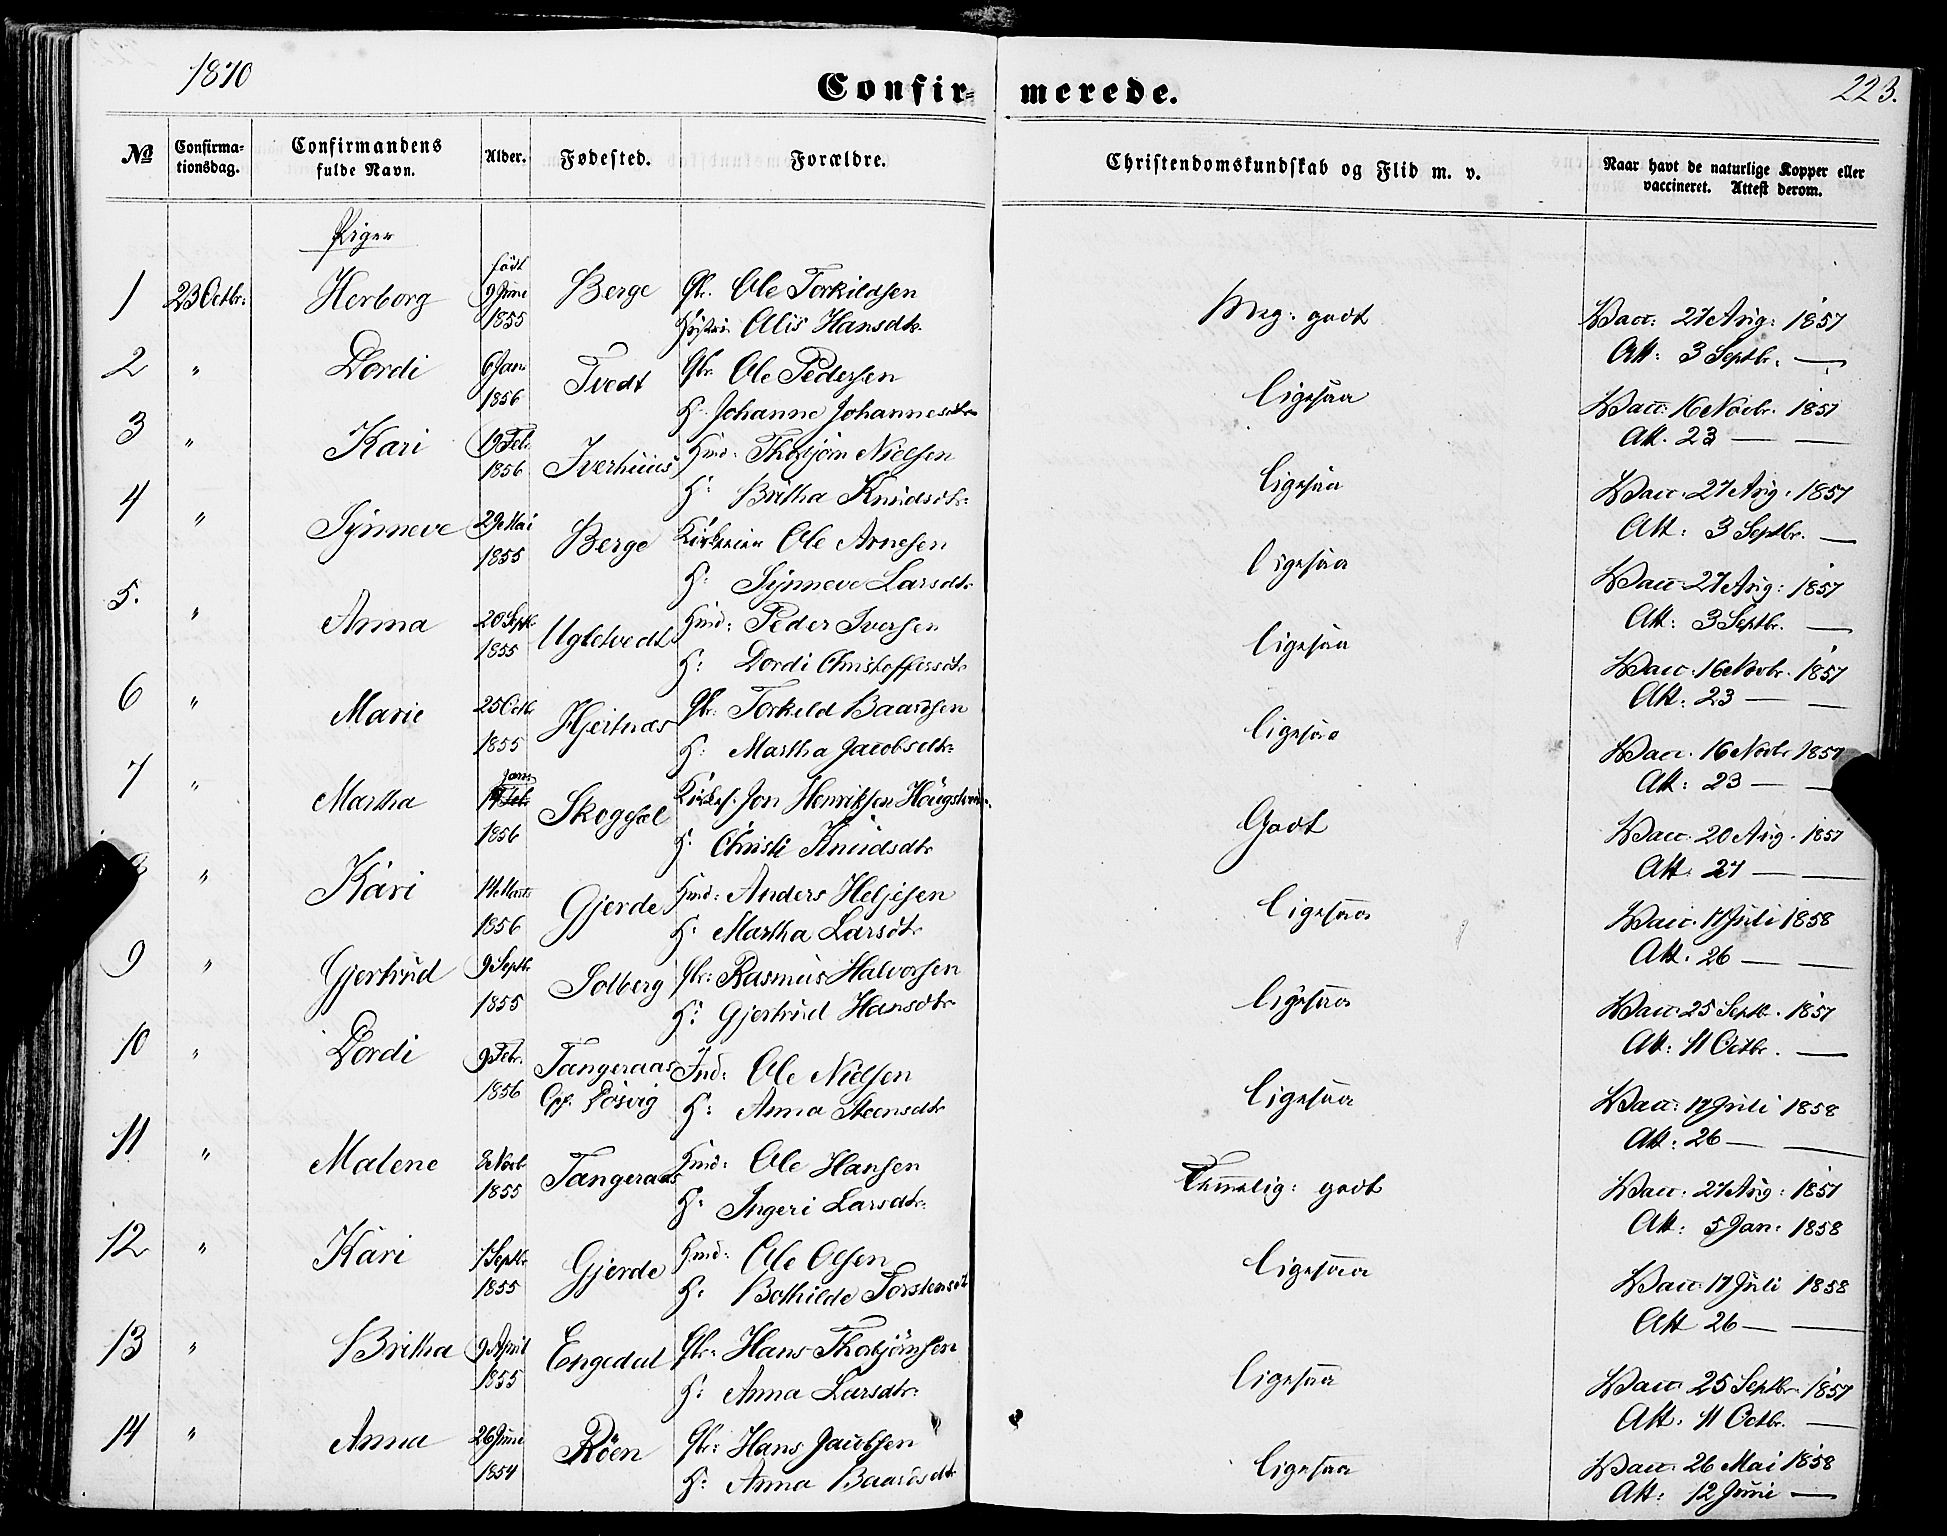 1870
Confir= merede.
223.
No
Confirma-
tionsdag.
Confirmandens
fulde Navn.
Alder.
Fødested.
Forældre.
Christendomskundskab og Flid m. v.
Naar havt de naturlige Kopper eller
vaccineret. Attest derom.
Piger
født
1 23 Octbr: Herborg 9 Juni Berge Gbr. Ole Torkildsen Meg: godt Vacc: 27 Aug: 1857
1855 Hustru Alis Hansdtr Att: 3 Septbr. —
2 " Dordi 6 Jan Tvedt Gbr. Ole Pedersen ligesaa Vacc. 16 Novbr. 1857
1856 H. Johanne Johannesdtr Att. 23 — —
3 " Kari 19 Feb. Iverhuus Hmd: Thorbjørn Nielsen ligesaa Vacc. 27 Aug. 1857
1856 H: Britha Knudsdtr Att: 3 Septbr. —
4 " Synneve 29 Mai Berge Ole Arnesen ligesaa Vacc. 27 Aug: 1857
1855 H: Synneve Larsdtr Att: 3 Septbr. —
5. " Anna 20 Septbr Ugletvedt Hmd: Peder Iversen ligesaa Vacc. 16 Novbr. 1857
1855 H: Dordi Christoffersdtr Att: 23 — —
6 " Marie 25 Octbr Hjertnæs Gbr. Torkeld Baardsen ligesaa Vacc. 16 Novbr 1857
1855 H: Martha Jacobsdtr Att: 23 — —
Jan
7 " Martha 14 Feb. Skoggal Jon Henriksen Godt Vacc. 20 Aug. 1857
1856 H: Christi Knudsdtr Att: 27 — —
8 " Kari 14 Marts Gjerde Hmd: Anders Heljesen ligesaa Vacc. 17 Juli 1858
1856 H: Martha Larsdt Att. 26 — —
9 " Gjertrud 9 Septbr. Solberg Gbr: Rasmus Halvorsen ligesaa Vacc. 25 Septbr. 1857
1855 H: Gjertrud Hansdtr Att: 11 Octbr. —
10 " Dordi 9 Febr. Tangeraas Ind: Ole Nielsen ligesaa Vacc: 17 Juli 1858
1856 Opf. Røsvig H: Anna Steensdtr Att: 26 — —
11 " Malene 8 Novb Tangeraas Hmd: Ole Hansen Temmelig: godt Vacc. 27 Aug: 1857
1855 H: Ingeri Larsdtr. Att: 5 Jan: 1858
12 " Kari 1 Septbr Gjerde Hmd: Ole Olsen ligesaa Vacc. 17 Juli 1858
1855 H. Bothilde Torstensdt Att 26 — —
13 " Britha 9 April Engedal Gbr: Hans Thorbjørnsen ligesaa Vacc. 25 Septbr. 1857
1855 H: Anna Larsdtr. Att: 11 Octbr. —
14 " Anna 26 Juni Röen Gbr: Hans Jacobsen ligesaa Vacc. 26 Mai 1858
1854 H: Anna Baardsdtr Att: 12 Juni —